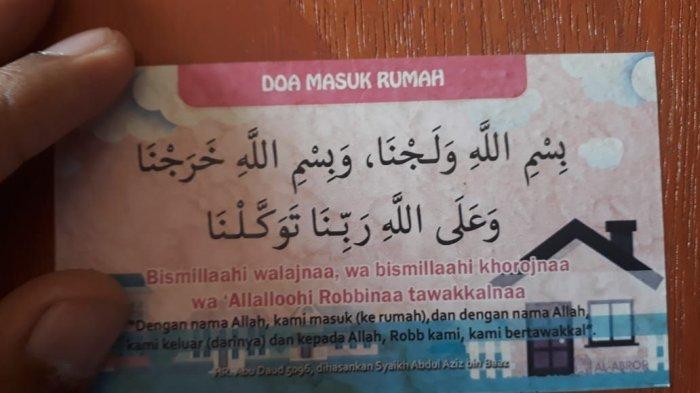 DOA MASUK RUMAH
بِسْمِ اللَّهِ وَلَجْنَا، وَبِسْمِ اللَّهِ خَرَجْنَا
وَعَلَى اللَّهِ رَبِّنَا تَوَكَّلْنَا
Bismillaahi walajnaa, wa bismillaahi khorojnaa
wa 'Allalloohi Robbinaa tawakkalnaa
"Dengan nama Allah, kami masuk (ke rumah), dan dengan nama Allah,
kami keluar (darinya) dan kepada Allah, Robb kami, kami bertawakkal".
HR. Abu Daud 5096, dihasankan Syaikh Abdul Aziz bin Baaz
AL-ABROR